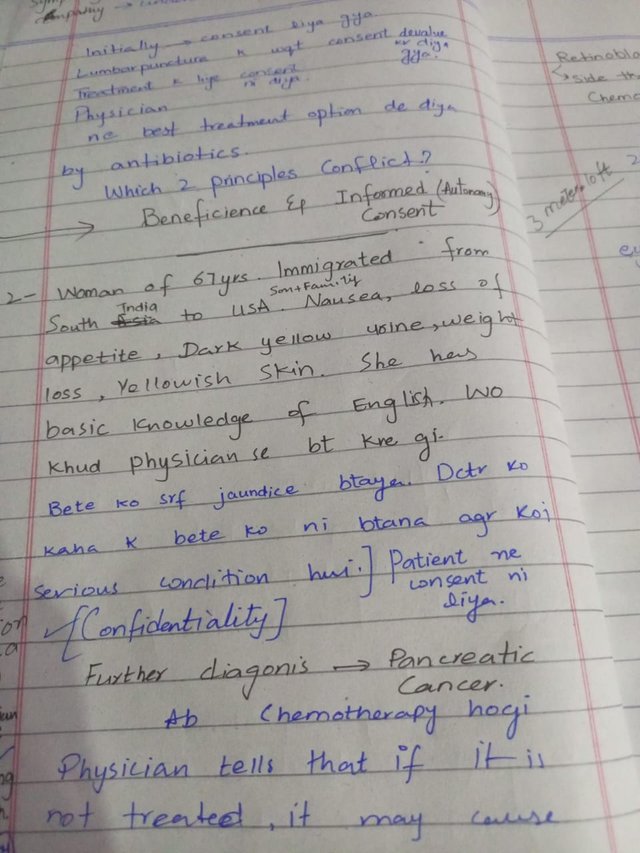 Initially → consent liya gya.
Lumbarpuncture k wqt consent devalue kr diya gya.
Treatment k liye consent ni diya.
Physician
ne best treatment option de diya
by antibiotics.
Which 2 principles Conflict?
→ Beneficience & Informed Consent (Autonomy)
2- Woman of 67yrs. Immigrated from
South India to USA. Son+Family Nausea, loss of
appetite, Dark yellow urine, weight
loss, Yellowish Skin. She has
basic knowledge of English. Wo
khud physician se bt kre gi.
Bete ko srf jaundice btaya. Dctr ko
kaha k bete ko ni btana agr koi
serious condition hui.] Patient ne consent ni diya.
[Confidentiality]
Further diagonis → Pancreatic Cancer.
Ab Chemotherapy hogi
Physician tells that if it is
not treated, it may cause
Retinobla
→ side the
Chemo
3 meter loft
2